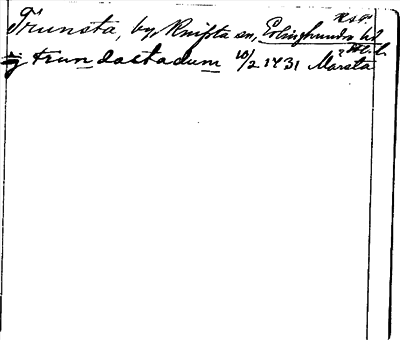 Trunsta, by, Knifsta sn, Erlinghundra hd
j trundastadum 10/2 1431 Märsta